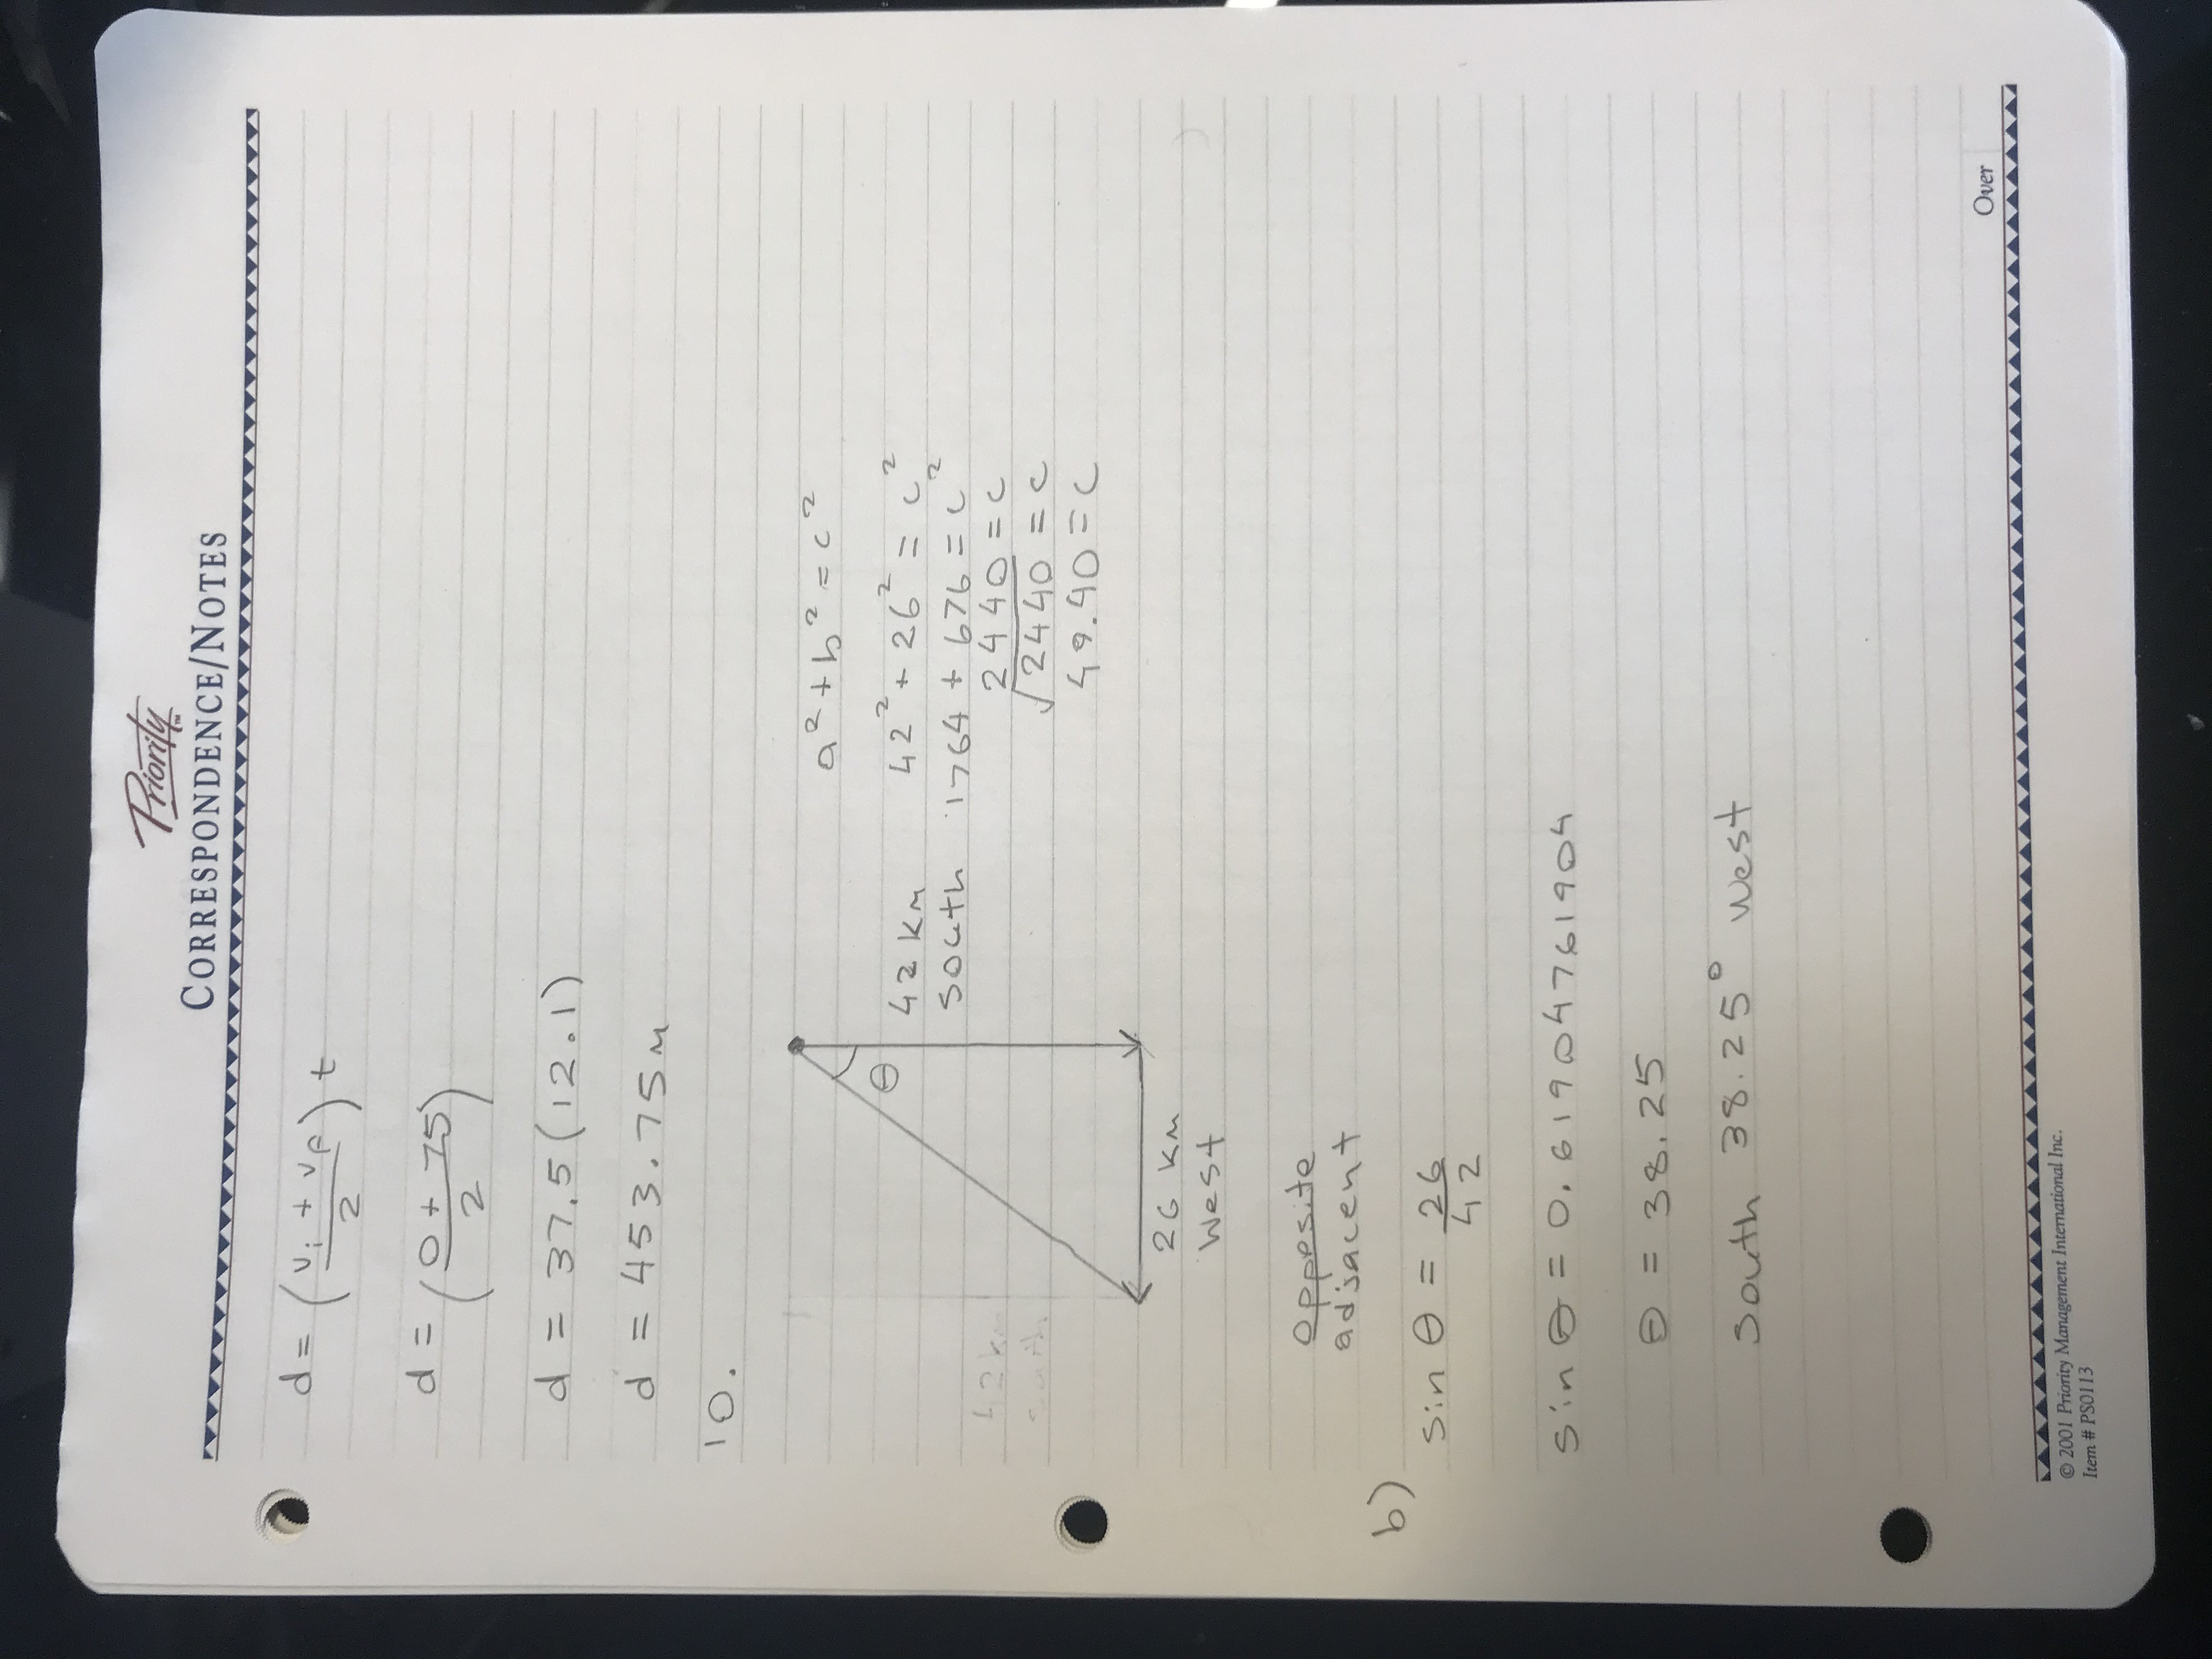 Priority™
CORRESPONDENCE/NOTES
d = (vi + vf / 2) t
d = (0 + 75 / 2)
d = 37.5(12.1)
d = 453.75m
10.
θ
42 km
south
26 km
West
a² + b² = c²
42² + 26² = c²
1764 + 676 = c²
2440 = c
√2440 = c
49.40 = c
42 km
south
opposite
adjacent
b)
sin θ = 26/42
sin θ = 0.61904761904
θ = 38.25
south 38.25° west
Over
© 2001 Priority Management International Inc.
Item # PS0113